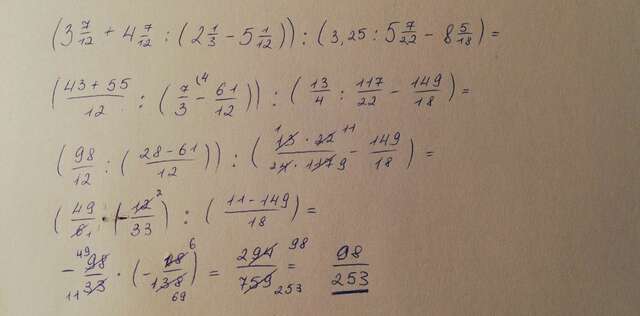 (3 7/12 + 4 7/12 : (2 1/3 − 5 1/12)) : (3,25 : 5 7/22 − 8 5/18) =
((43 + 55)/12 : (7/3 (4 − 61/12)) : (13/4 : 117/22 − 149/18) =
(98/12 : ((28 − 61)/12)) : ((1 13 · 22 11)/(24 · 117 9) − 149/18) =
(49/61 · (−12 2/33) : ((11 − 149)/18) =
− 49 98/11 33 · (−18 6/138 69) = 294 98/759 253 = 98/253